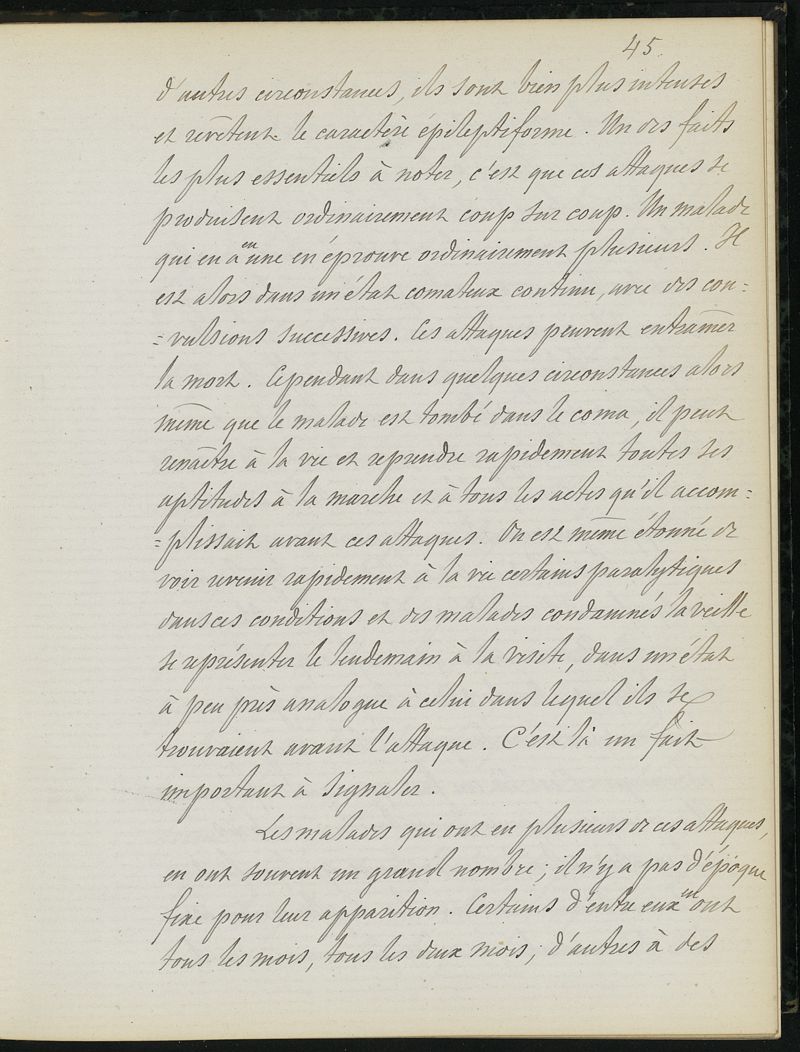 45.
d'autres circonstances, ils sont bien plus intenses
et revêtent le caractère épileptiforme. Un des faits
les plus essentiels à noter, c'est que ces attaques se
produisent ordinairement coup sur coup. Un malade
qui en a eu une en éprouve ordinairement plusieurs. Il
est alors dans un état comateux continu, avec des con=
=vulsions successives. Ces attaques peuvent entraîner
la mort. Cependant dans quelques circonstances alors
même que le malade est tombé dans le coma, il peut
renaître à la vie et reprendre rapidement toutes ses
aptitudes à la marche et à tous les actes qu'il accom=
=plissait avant ces attaques. On est même étonné de
voir revenir rapidement à la vie certains paralytiques
dans ces conditions et des malades condamnés la veille
se représenter le lendemain à la visite, dans un état
à peu près analogue à celui dans lequel ils se
trouvaient avant l'attaque. C'est là un fait
important à signaler.
Les malades qui ont eu plusieurs de ces attaques,
en ont souvent un grand nombre; il n'y a pas d'époque
fixe pour leur apparition. Certains d'entre eux en ont
tous les mois, tous les deux mois; d'autres à des